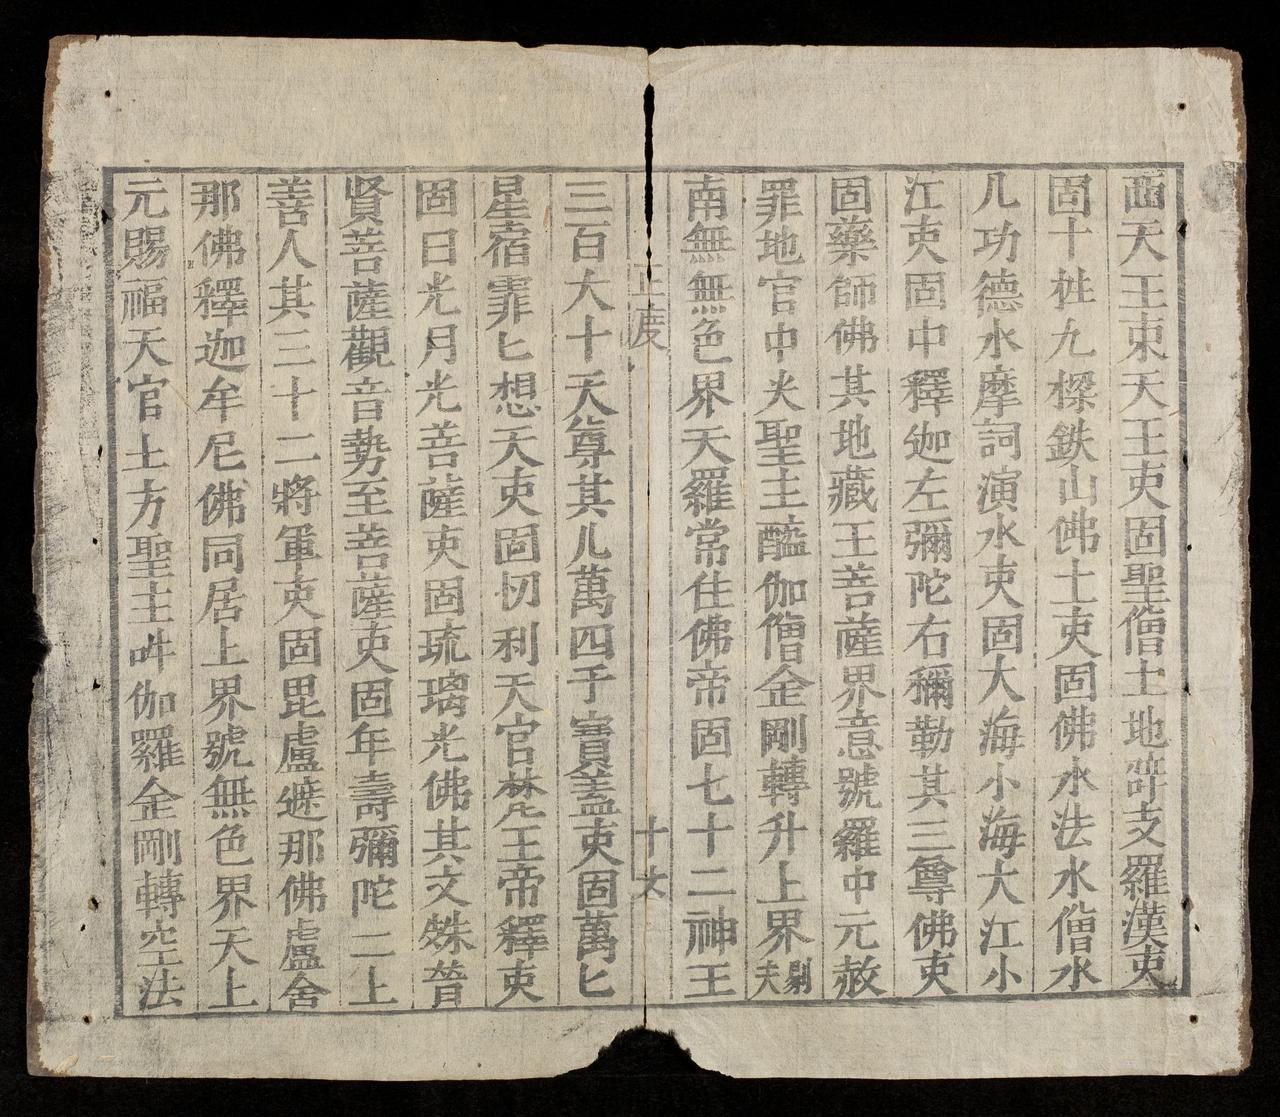 西天王東天王吏固聖僧土地符支羅漢吏
固十柱九樑鉄山佛土吏固佛水法水僧水
几功德水摩訶演水吏固大海小海大江小
江吏固中釋迦左彌陀右彌勒其三尊佛吏
固藥師佛其地藏王菩薩界意號羅中元赦
罪地官中火聖主醯伽僧企剛轉升上界剝夫
南無無色界天羅常住佛帝固七十二神王
正度 十六
三百大十天尊其儿萬四子寶盖吏固萬匕
星宿霏匕想天吏固忉利天官梵王帝釋吏
固日光月光菩薩吏固琉璃光佛其文殊普
賢菩薩觀音勢至菩薩吏固年壽彌陀二上
善人其三十二將軍吏固毘盧遮那佛盧舍
那佛釋迦牟尼佛同居上界號無色界天上
元賜福天官土方聖主吽伽羅企剛轉空法